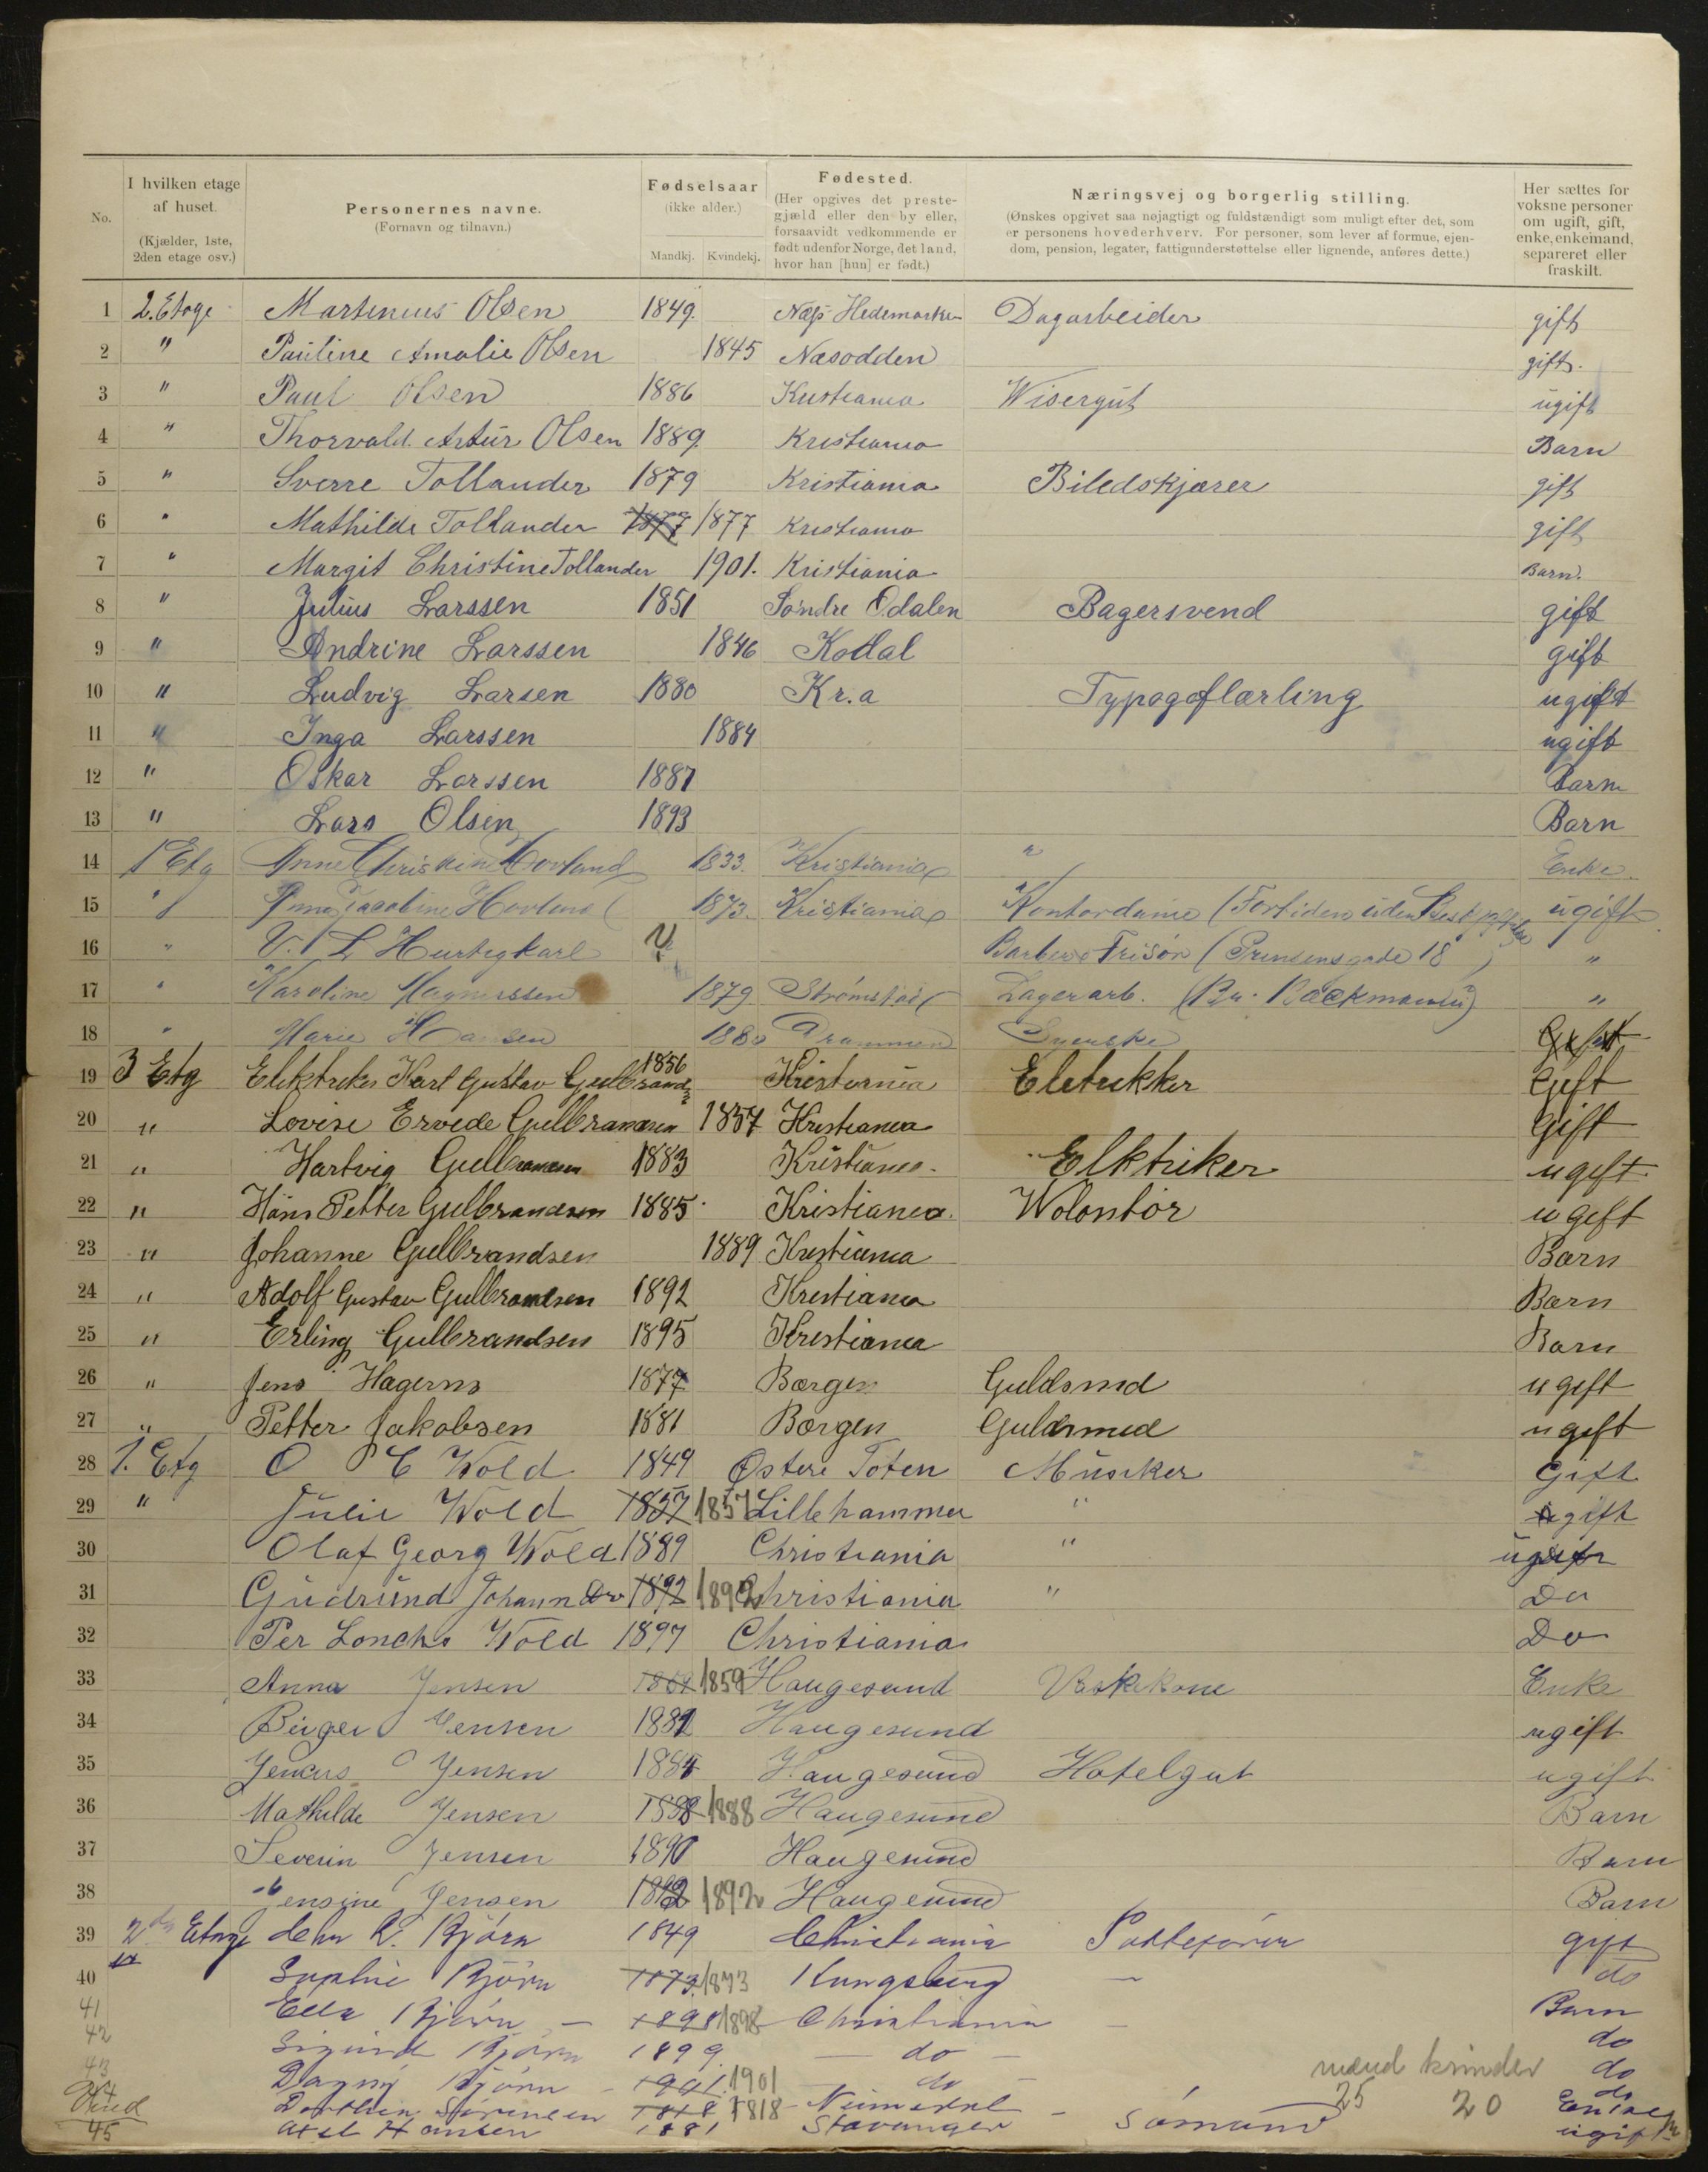 No.
I hvilken etage af huset. (Kjælder, 1ste, 2den etage osv.)
Personernes navne. (Fornavn og tilnavn.)
Fødselsaar (ikke alder.) Mandkj. Kvindekj.
Fødested. (Her opgives det prestegjæld eller den by eller, forsaavidt vedkommende er født udenfor Norge, det land, hvor han [hun] er født.)
Næringsvej og borgerlig stilling. (Ønskes opgivet saa nøjagtigt og fuldstændigt som muligt efter det, som er personens hovederhverv. For personer, som lever af formue, ejendom, pension, legater, fattigunderstøttelse eller lignende, anføres dette.)
Her sættes for voksne personer om ugift, gift, enke, enkemand, separeret eller fraskilt.
1 2. Etage Martinius Olsen 1849. Næs Hedemarken Dagarbeider gift
2 " Pauline Amalie Olsen 1845 Næsodden gift.
3 " Paul Olsen 1886 Kristiania Wisergut ugift
4 " Thorvald Artur Olsen 1889. Kristiania Barn
5 " Sverre Tollander 1879 Kristiania Biledskjærer gift
6 " Mathilde Tollander 1877 1877 Kristiania gift
7 " Margit Christine Tollander 1901. Kristiania Barn.
8 " Julius Larssen 1851 Søndre Odalen Bagersvend gift
9 " Andrine Larssen 1846 Kodal gift
10 " Ludvig Larsen 1880 Kr.a Typogoflærling ugift
11 " Inga Larssen 1884 ugift
12 " Oskar Larssen 1887 Barn
13 " Lars Olsen 1893 Barn
14 1 Etg Anne Christine Hovland 1833. Kristiania " Enke.
15 " Anna Jacobine Hovland 1873. Kristiania Kontordame (Fortiden uden ugift
16 " V. L Hurtigkarl Barber & Frisør (Prinsensgade 18 "
17 " Karoline Magnussen 1879 Strømstad Lagerarb. "
18 " Marie Hansen 1880 Drammen Syerske
19 3 Etg Elektriker Karl Gustav Gulbrands 1856 Kristiania Eletrikker Gift
20 " Lovise Ervede Gulbrandsen 1857 Kristiania Gift
21 " Hartvig Gulbrandsen 1883 Kristiania. Elktriker ugift
22 " Hans Petter Gulbrandsen 1885. Kristiania. Wolontør ugift
23 " Johanne Gulbrandsen 1889 Kristiania Barn
24 " Adolf Gustav Gulbrandsen 1892 Kristiania Barn
25 " Erling Gulbrandsen 1895 Kristiania Barn
26 " Jens Hagerns 1877 Bærgen Guldsmd ugift
27 " Petter Jakobsen 1881 Bærgen Guldsmed ugift
28 1. Etg O C Wold 1849 Østere Toten Musiker Gift
29 " Julie Wold 1857 1857 Lillehammer " gift
30 Olaf Georg Wold 1889 Christiania " ugift
31 Gudrund Johann 1892 1892 Christiania " Do
32 Per Wold 1897 Christiania Do
33 Anna Jensen 1859 Haugesund Vaskekone Enke
34 Birger Jensen 1882 Haugesund ugift
35 Jensen 1884 Haugesund Hotelgut ugift
36 Mathilde Jensen 1888 1888 Haugesund Barn
37 Severin Jensen 1890 Haugesund Barn
38 Jensine Jensen 1892 1892 Haugesund Barn
39 2den Etage Chr Bjørn 1849 Christiania gift
40 Sophie Bjørn 1873. 1873 Kungsberg — do
41 Ella Bjørn — 1898 1898 Christiania — Barn
42 Sigurd Bjørn 1899. — do — do
43 Dagny Bjørn — 1901. 1901 — do — do
mænd kvinder
44 Sørensen 1818 1818 — do Enke
25 20
45 Axel Hansen 1881 Stavanger Sømand ugift